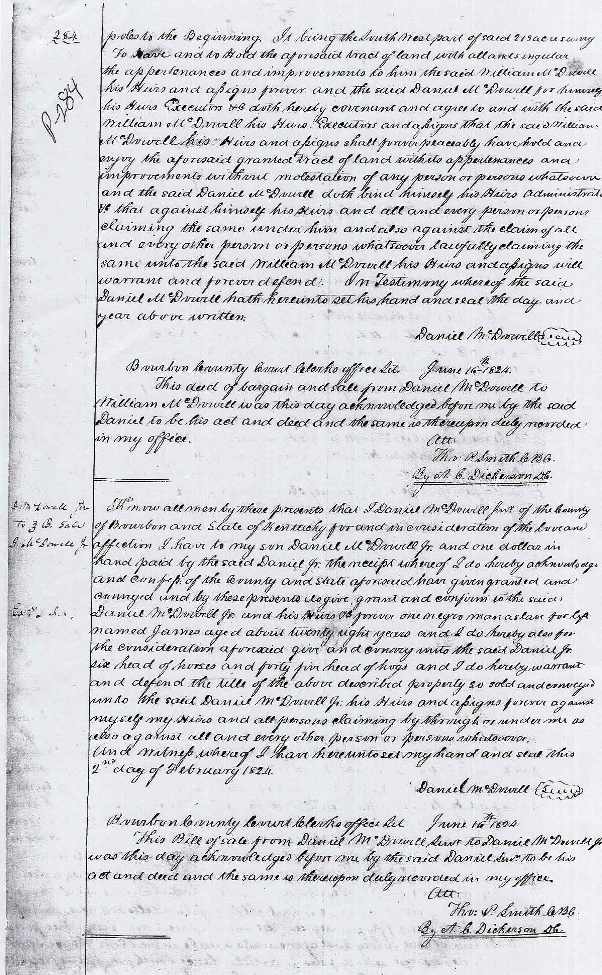 284
P-284
poles to the Beginning. It being the South West part of said 213 acre survey
To Have and to Hold the aforesaid tract of land with all and singular
the appertenances and improvements to him the said William McDowell
his Heirs and assigns forever and the said Daniel McDowell for himself
his Heirs Executors &c doth hereby covenant and agree to and with the said
William McDowell his Heirs Executors and assigns that the said William
McDowell his Heirs and assigns shall forever peaceably have hold and
enjoy the aforesaid granted tract of land with its appertenances and
improvements without molestation of any person or persons whatsoever
and the said Daniel McDowell doth bind himself his Heirs administrat
&c that against himself his Heirs and all and every person or persons
claiming the same under him and also against the claim of all
and every other person or persons whatsoever lawfully claiming the
same unto the said William McDowell his Heirs and assigns will
warrant and forever defend. In Testimony whereof the said
Daniel McDowell hath hereunto set his hand and seal the day and
year above written.
Daniel McDowell Seal
Bourbon County Court Clerks office Sct June 16th 1824.
This deed of bargain and sale from Daniel McDowell to
William McDowell was this day acknowledged before me by the said
Daniel to be his act and deed and the same is thereupon duly recorded
in my office.
Att.
Tho: P. Smith C.B.C.
By A. C. Dickerson D.C.
Know all men by these presents that I Daniel McDowell Senr. of the County
of Bourbon and State of Kentucky for and in consideration of the love and
affection I have to my son Daniel McDowell Jr. and one dollar in
hand paid by the said Daniel Jr. the receipt whereof I do hereby acknowledge
and confess of the County and state aforesaid have given granted and
conveyed and by these presents do give grant and confirm to the said
Daniel McDowell Jr. and his Heirs &c forever one negro man a slave for life
named James aged about twenty eight years and I do hereby also for
the consideration aforesaid give and convey unto the said Daniel Jr.
six head of horses and forty five head of hogs and I do hereby warrant
and defend the title of the above described property so sold and conveyed
unto the said Daniel McDowell Jr. his Heirs and assigns forever against
myself my Heirs and all persons claiming by through or under me as
also against all and every other person or persons whatsoever.
And Witness whereof I have hereunto set my hand and seal this
2nd day of February 1824.
Daniel McDowell Seal
Bourbon County Court Clerks office Sct June 16th 1824
This Bill of sale from Daniel McDowell Senr to Daniel McDowell Jr
was this day acknowledged before me by the said Daniel Senr. to be his
act and deed and the same is thereupon duly recorded in my office.
Att.
Tho: P. Smith C.B.C.
By A. C. Dickerson D.C.